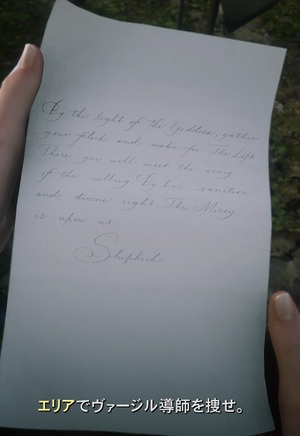 By the light of the Goddess, gather
your flock and make for The Left
There you will meet the army
of the willing. By her sanction
and divine right, The Mercy
is upon us.
Shepherd
エリアでヴァージル導師を捜せ。